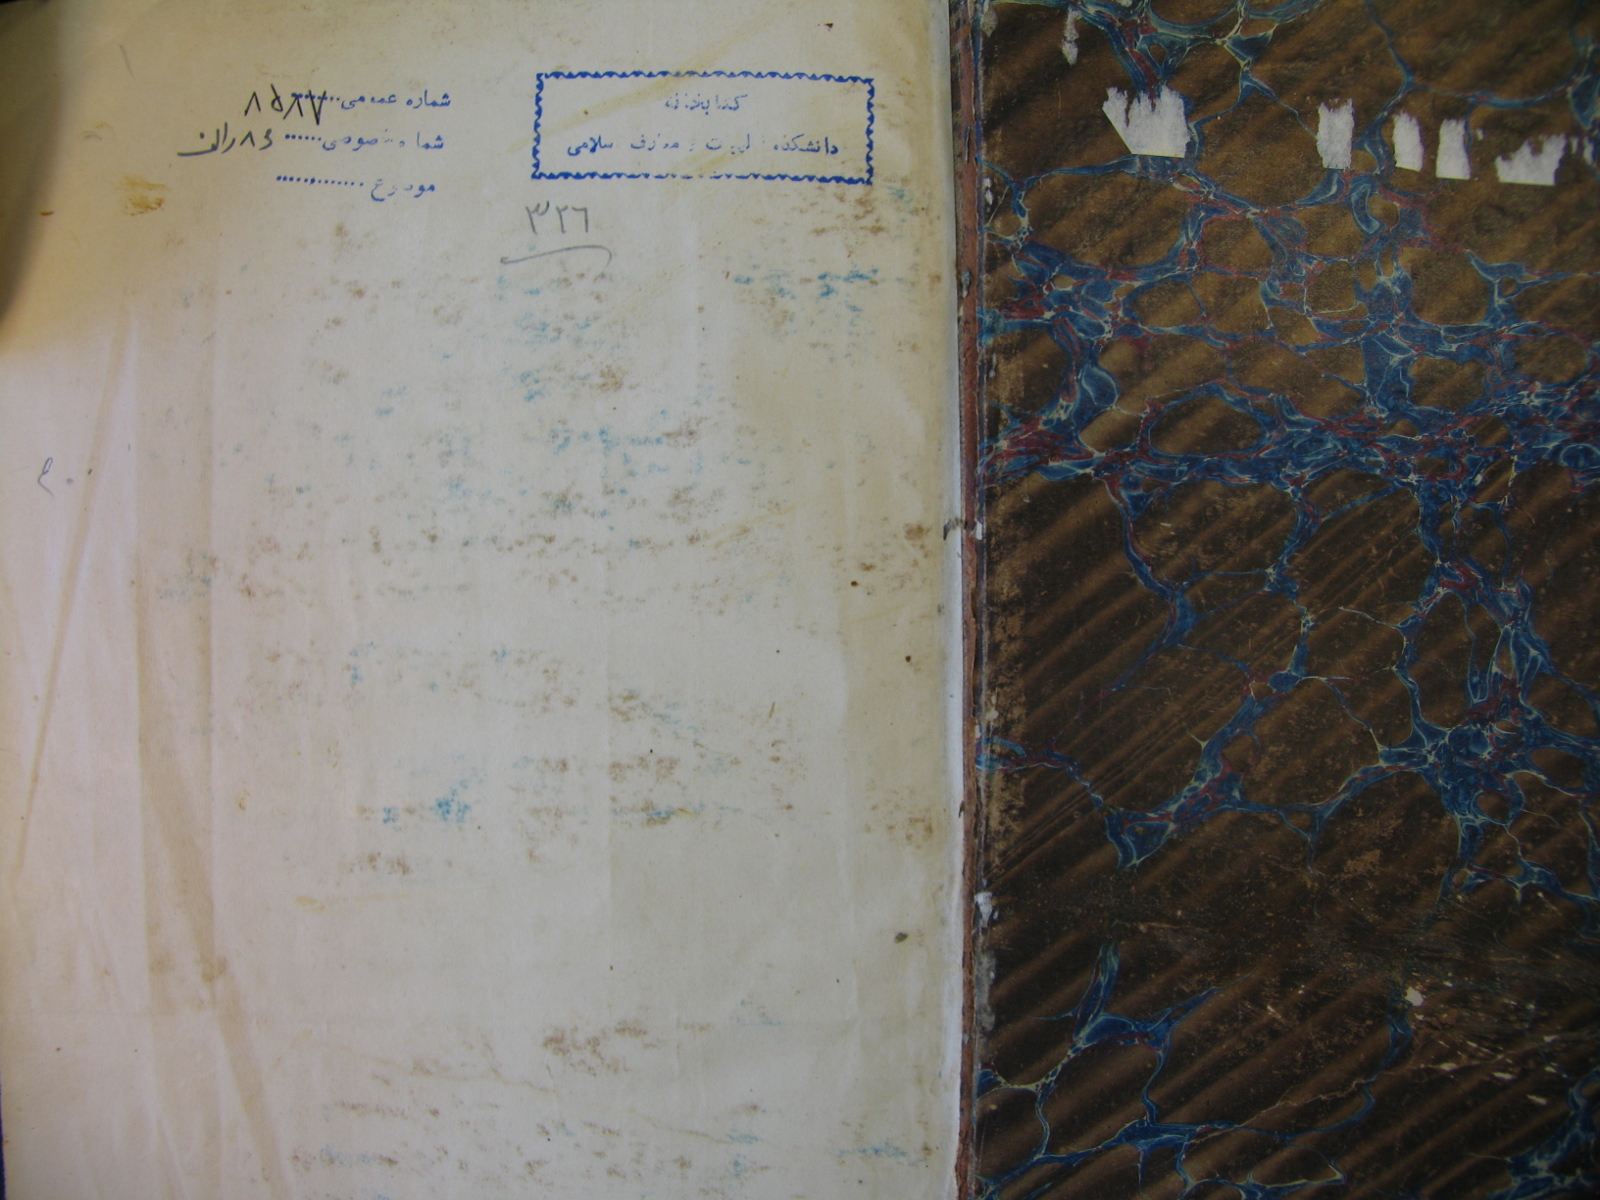 کتابخانه
دانشکده الهیات و معارف اسلامی
شماره عمومی ۸۵۸۷
شماره خصوصی
موضوع
۳۲۶